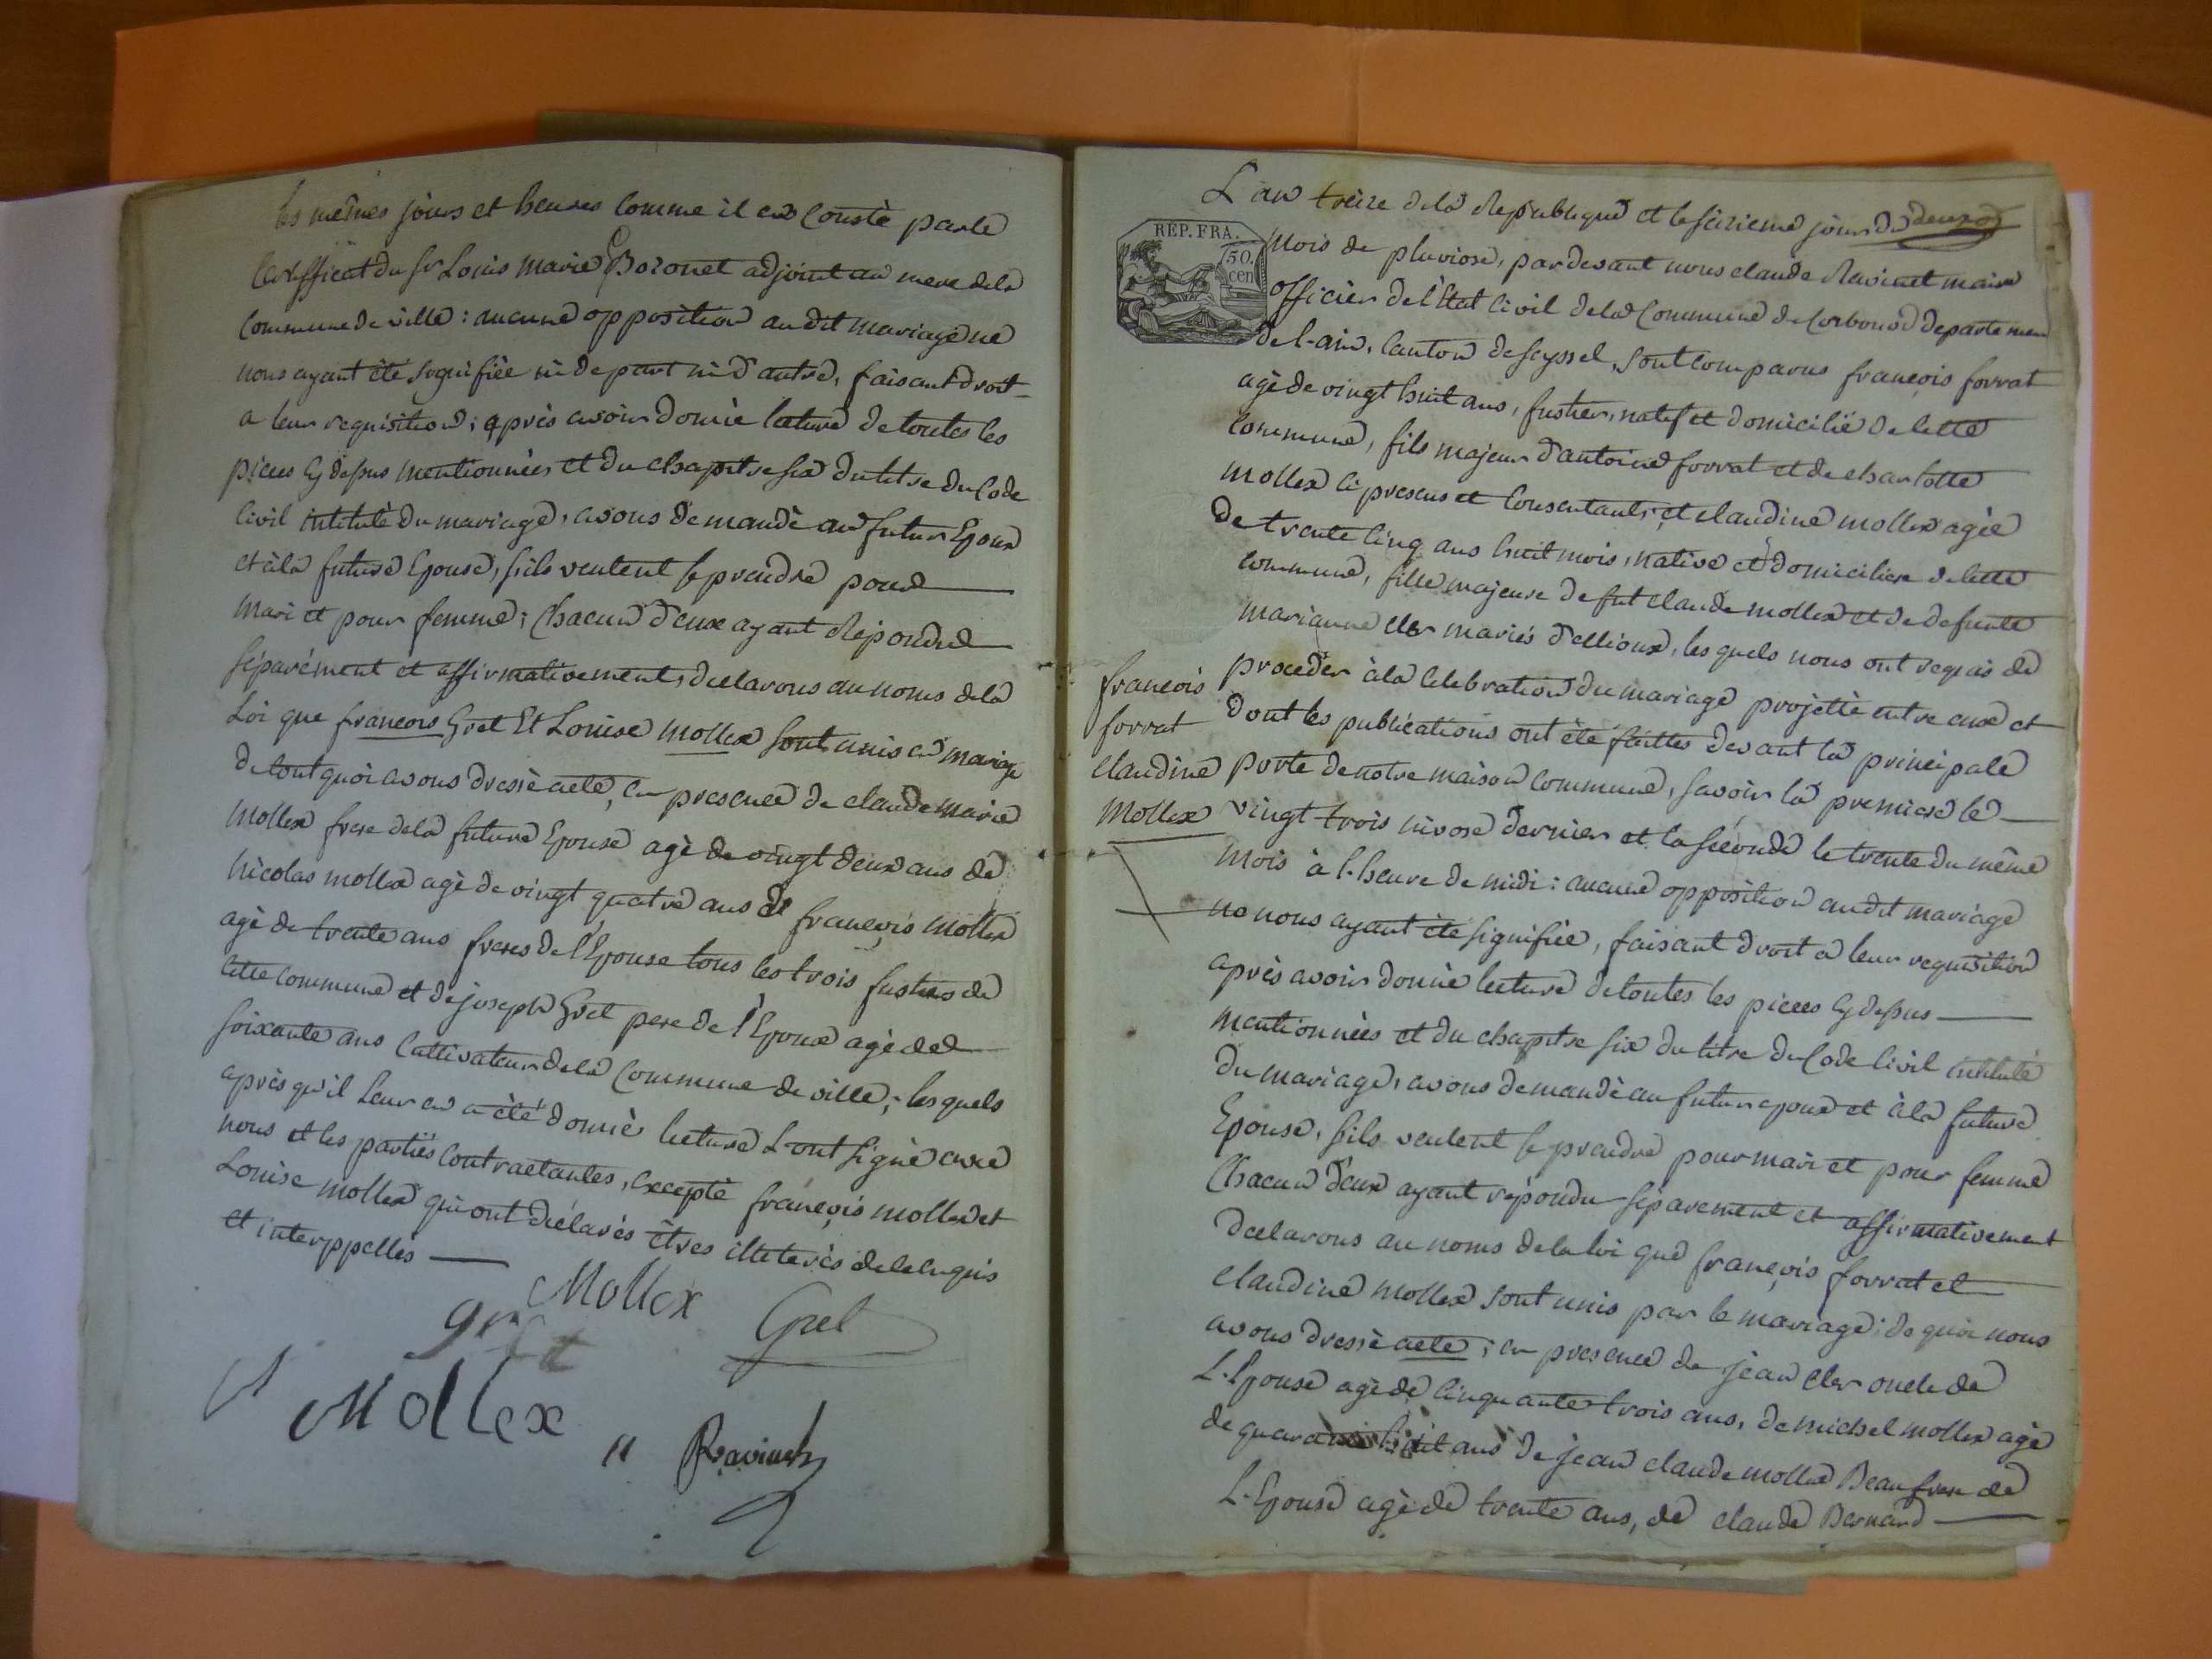 les mêmes jours et heures comme il en conste par le
certifficat du sr Louis Marie Bozonet adjoint au mere de la
Commune de ville : aucune opposition audit mariage ne
nous ayant été signifiée ni de part ni d'autre, faisant droit
a leur requisition ; après avoir donnè lecture de toutes les
pieces cy dessus mentionnées et du chapitre six du titre du Code
Civil intitulè du mariage, avons demandè au futur Epoux
et à la future Epouse, s'ils veulent se prendre pour
mari et pour femme ; Chacun d'eux ayant Répondu
séparément et affirmativement, declarons au noms de la
Loi que francois Gret Et Louise mollex sont unis en mariage
de tout quoi avons dressè acte, en presence de claude marie
Mollex frere de la future Epouse agè de vingt deux ans de
Nicolas mollex agè de vingt quatre ans de françois mollex
agè de trente ans freres de l'Epouse tous les trois fustiers de
cette commune et de joseph Gret pere de l'Epoux agè de
soixante ans Cultivateur de la Commune de ville ; les quels
après qu'il Leur en a été donnès lecture L'ont signè avec
nous et les partiès Contractantes, Exceptè françois mollex et
Louise mollex qui ont déclarés êtres illeterès de ce enquis
et interppellès
Mollex
gret Gret
Mollex
Ravinet
L'an treize de la Republique et le seizieme jour du deuxo
RÉP. FRA.
50.
cen
Mois de pluviose, par devant nous claude Ravinet maire
officier de l'état Civil de la Commune de Corbonod departemen
de l'ain, Canton de seyssel, sont comparus françois forrat
agè de vingt huit ans, fustier, natif et domicilié de cette
Commune, fils majeur d'antoine forrat et de charlotte
Mollex ci presens et Consentants, et claudine mollex agèe
de trente cinq ans huit mois, native et domiciliere de cette
commune, fille majeure de fut claude mollex et de defunte
marianne cler mariès d'ellioux, les quels nous ont requis de
proceder à la celebration du mariage projettè entre eux et
dont les publications ont ètè faittes devant la principale
porte de notre maison Commune, savoir la premiere le
vingt trois nivose dernier et la seconde le trente du même
françois
forrat
claudine
Mollex
Mois à l'heure de midi : aucune opposition audit mariage
ne nous ayant été signifiée, faisant droit a leur requisition
après avoir donnè lecture de toutes les pieces cy dessus
mentionnées et du chapitre six du titre du Code Civil intitulè
du mariage, avons demandè au futur epoux et à la future
Epouse, s'ils veulent se prendre pour mari et pour femme
Chacun d'eux ayant répondu séparement et affirmativement
declarons au noms de la loi que françois forrat et
claudine mollex sont unis par le mariage ; de quoi nous
avons dressè acte ; en presence de jean cler oncle de
L'Epouse agè de cinquante trois ans, de michel mollex agè
de quarante huit ans de jean claude mollex Beau frere de
L'Epouse agè de trente ans, de claude Bernard